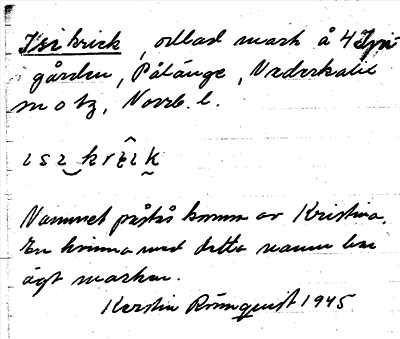 Isikrick, odlad mark å 4
gården, Pålänge, Nederkalix
motz, Norrb. l.
ısı‿krêık̮
Namnet påstås komma av Kristina.
En kvinna med detta namn lär
ägt marken.
Kerstin Rönnquist 1945